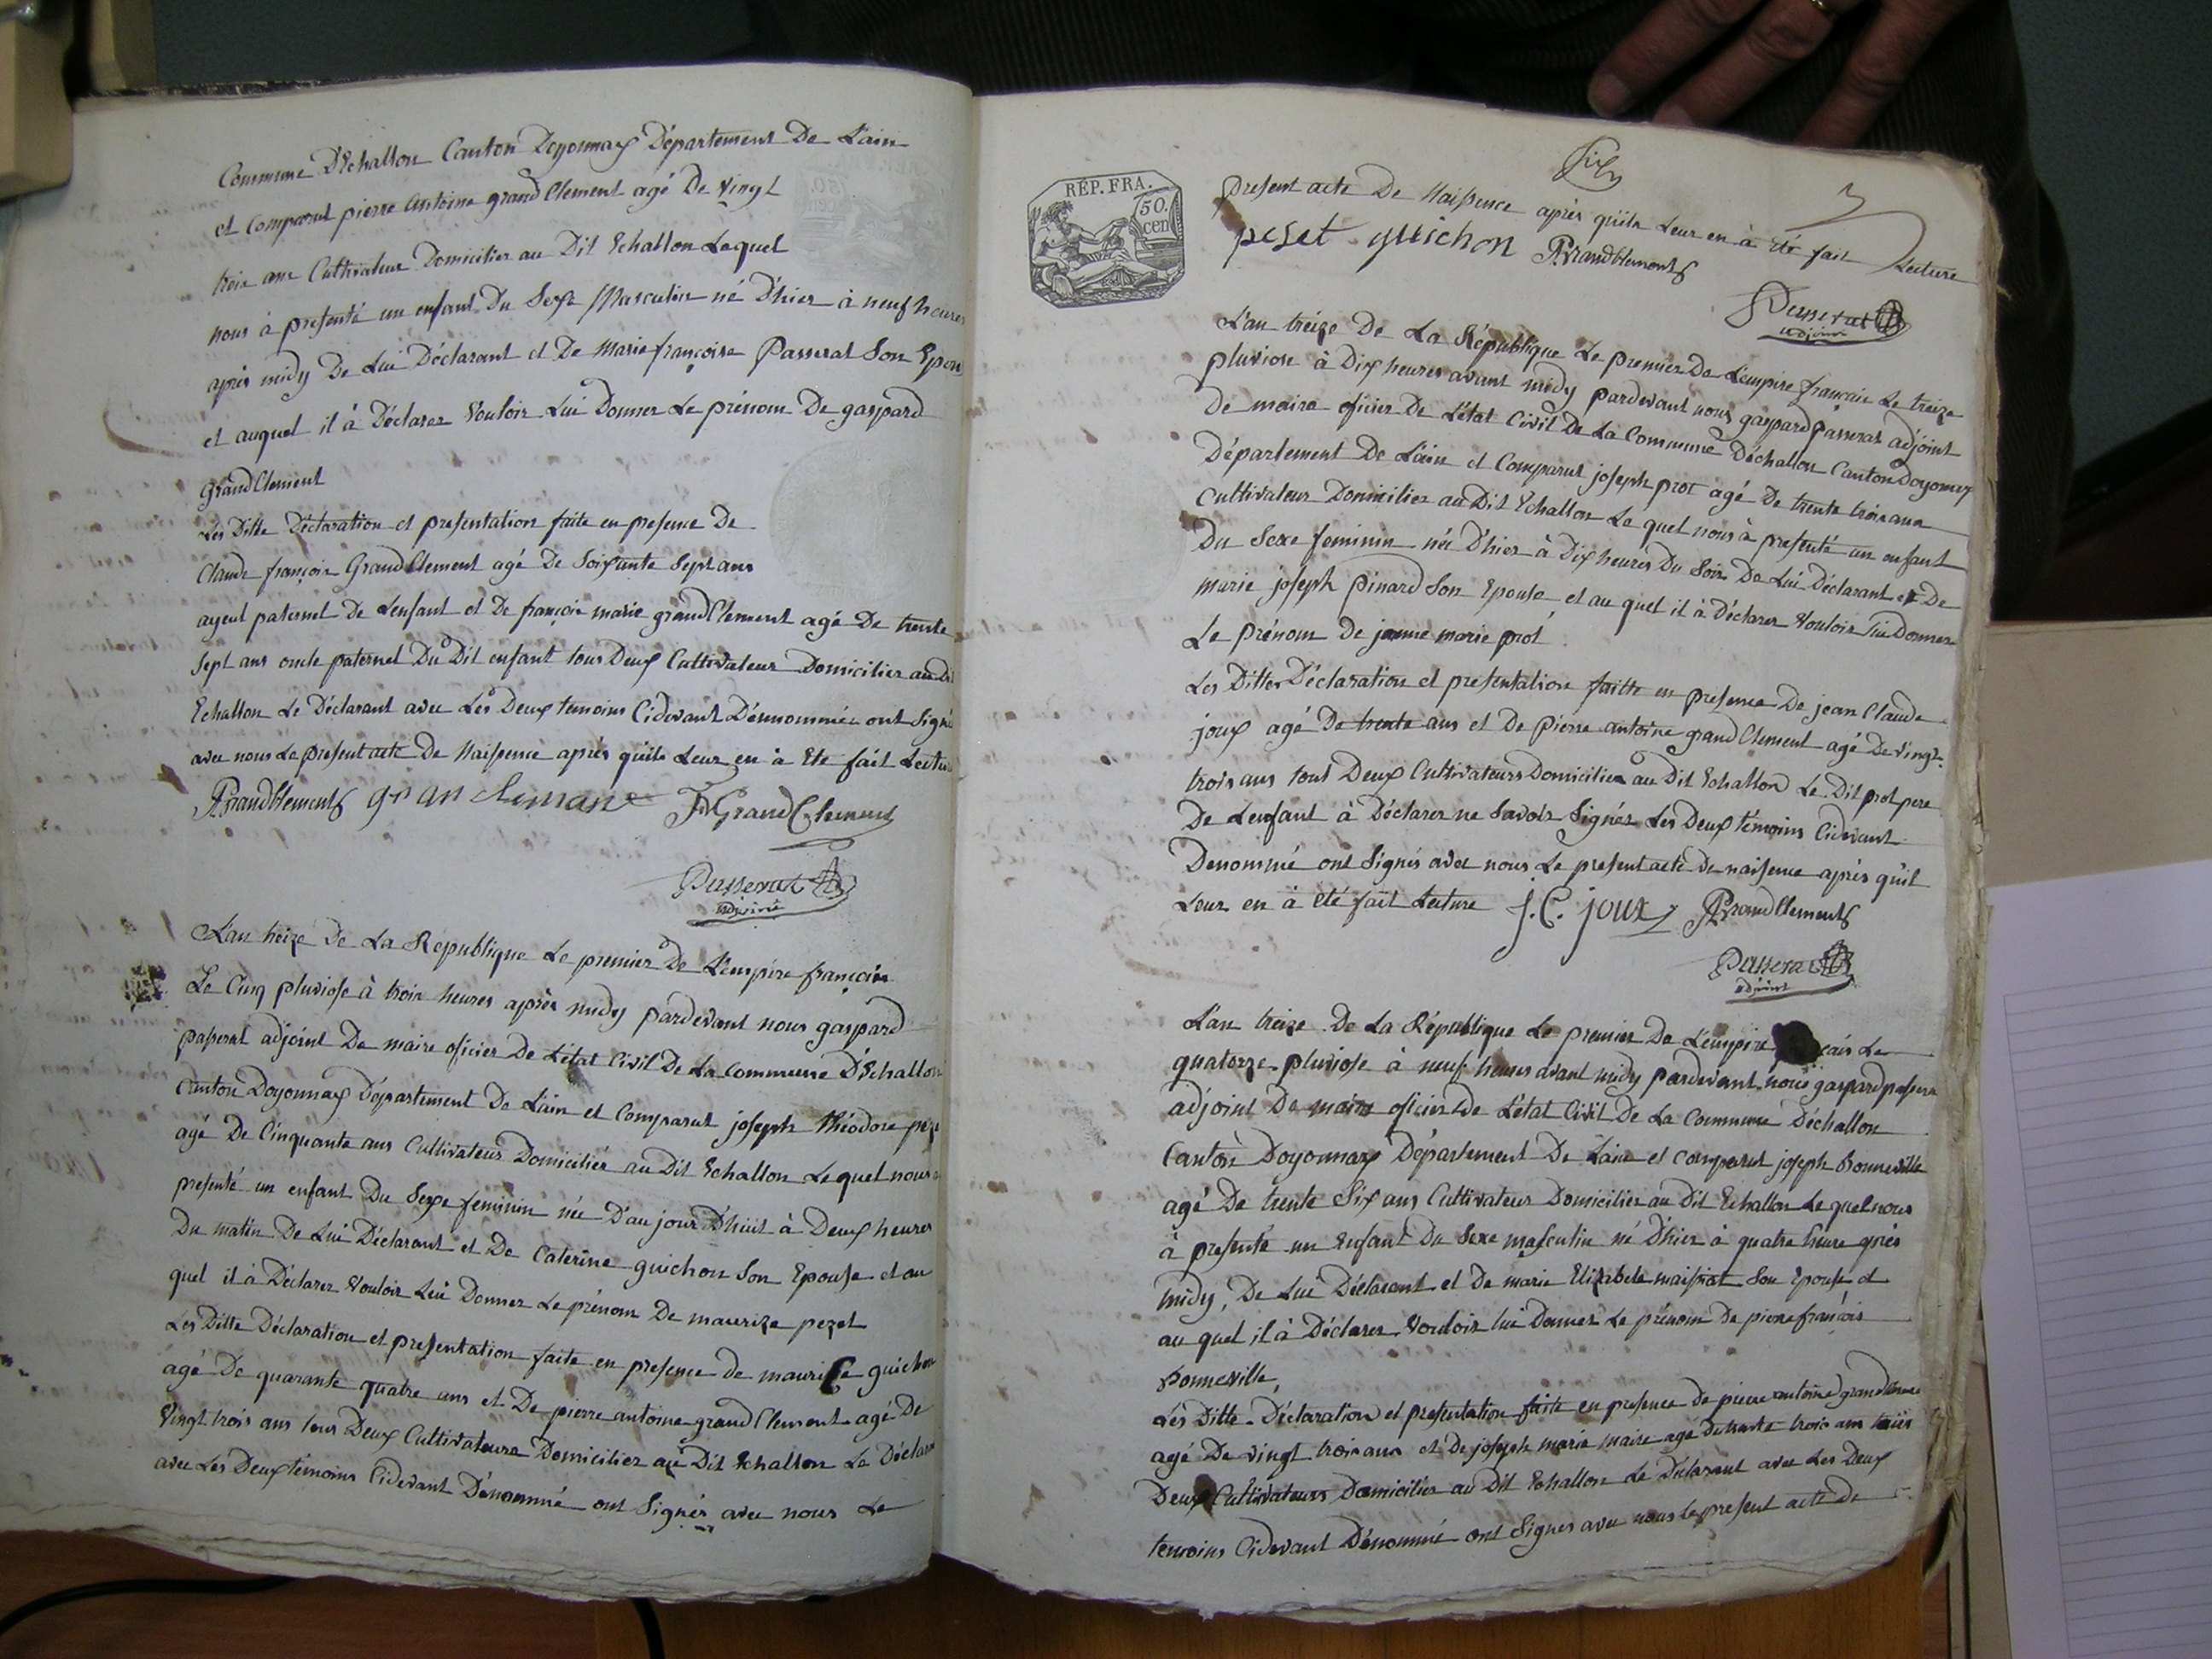 Commune D'Echallon Canton Doyonnax Département De L'ain
et Comparut pierre Antoine grand Clement agé De vingt
trois ans Cultivateur Domicilier au Dit Echallon Lequel
nous à presenté un enfant Du Sexe Masculin né D'hier à neuf heures
après midy De Lui Déclarant et De Marie françoise Passerat Son Epou
et auquel il à Déclarer Vouloir Lui Donner Le prénom De gaspard
Grand Clement
Les Ditte Déclaration et presentation faite en presence De
Claude françois Grand Clement agé De Soixante Sept ans
ayeul paternel De Lenfant et De françois marie grand Clement agé De trente
Sept ans oncle paternel Du Dit enfant tous Deux Cultivateur Domicilier au Dit
Echallon Le Déclarant avec Les Deux temoins Cidevant Dénnommée ont Signé
avec nous Le present acte De Naissence après quils Leur en à Ete fait Lectu
PAGrandClement gran clemant FMGrandClement
Passerat
adjoint
L'an treize De La République Le premier De L'empire françois
Le Cinq pluviose à trois heures après midy pardevant nous gaspard
passerat adjoint De maire oficier De L'état Civil De La Commune D'Echallon
Canton Doyonnax Département De L'ain et Comparut joseph théodore peze
agé De Cinquante ans Cultivateur Domicilier au Dit Echallon Le quel nous à
presenté un enfant Du Sexe feminin née D'au jourd'huit à Deux heures
Du matin De Lui Déclarant et De Caterine guichon Son Epouse et au
quel il à Déclarer Vouloir Lui Donner Le prénom De maurize pezet
Les Ditte Déclaration et presentation faite en presence de maurise guichon
agé De quarante quatre ans et De pierre antoine grand Clement agé De
Vingt trois ans tous Deux Cultivateurs Domicilier au Dit Echallon Le Déclara
avec Les Deux témoins Cidevant Dénommé ont Signés avec nous Le
RÉP. FRA.
50.
cen
Six
3
present acte De Naissence après quils Leur en à été fait Lecture
peset guichon PAGrandClement
Passerat
adjoint
L'an treize De La République Le premier De L'empire français Le treize
pluviose à Dix heures avant midy pardevant nous gaspard passerat adjoint
De maire oficier De L'état Civil De La Commune Déchallon Canton Doyonnax
Département De L'ain et Comparut joseph prot agé De trente trois ans
Cultivateur Domicilier au Dit Echallon Le quel nous à presenté un enfant
Du Sexe feminin née D'hier à Dix heures Du Soir De Lui Déclarant et De
marie joseph pinard Son Epouse et au quel il à Déclarer Vouloir Lui Donner
Le prénom De janne marie prot
Les Dittes Déclaration et presentation faitte en presence De jean Claude
joux agé De trente ans et De Pierre antoine grand Clement agé De Vingt
trois ans tout Deux Cultivateurs Domicilier au Dit Echallon Le Dit prot pere
De Lenfant à Déclarer ne Savoir Signér Les Deux témoins Cidevant
Denommé ont Signés avec nous Le present acte De naissence après quil
Leur en à été fait Lecture J. C. joux PAGrandClement
Passerat
adjoint
L'an treize De La République Le premier De L'empire çais Le
quatorze pluviose à neuf heures avant midy pardevant nous gaspard passera
adjoint De maire oficier De L'état Civil De La Commune Déchallon
Canton Doyonnax Département De L'ain et Comparut joseph Bonneville
agé De trente Six ans Cultivateur Domicilier au Dit Echallon Le quel nous
à presenté un Enfant Du Sexe masculin né D'hier à quatre heure après
midy, De Lui Déclarant et De marie Elizabete maissiat Son Epouse et
au quel il à Déclarer Vouloir lui Donner Le prénom De pierre françois
Bonneville,
Les Ditte Déclaration et presentation faite en presence De pierre antoine grand Clement
agé De vingt trois ans et De joseph marie maire agé De trente trois ans tous
Deux Cultivateurs Domicilier au Dit Echallon Le Déclarant avec Les Deux
temoins Cidevant Dénommé ont Signes avec nous Le present acte De